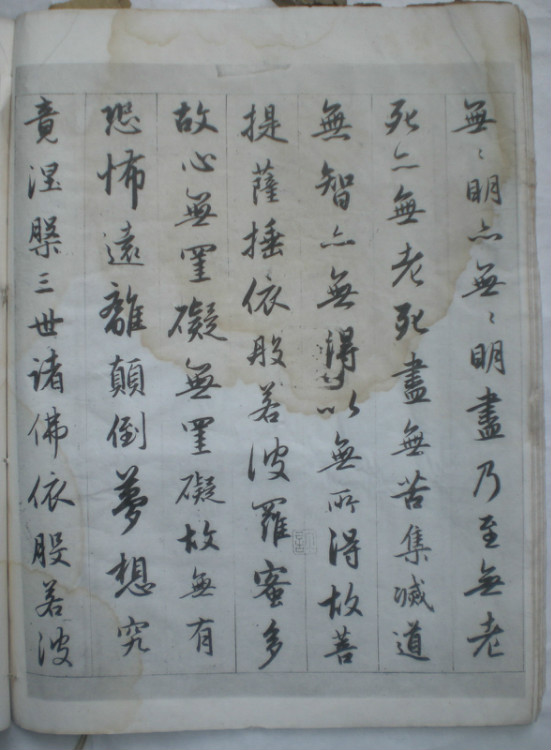 無〻明亦無〻明盡乃至無老
死亦無老死盡無苦集滅道
無智亦無得以無所得故菩
提薩埵依般若波羅蜜多
故心無罣礙無罣礙故無有
恐怖遠離顛倒夢想究
竟涅槃三世諸佛依般若波